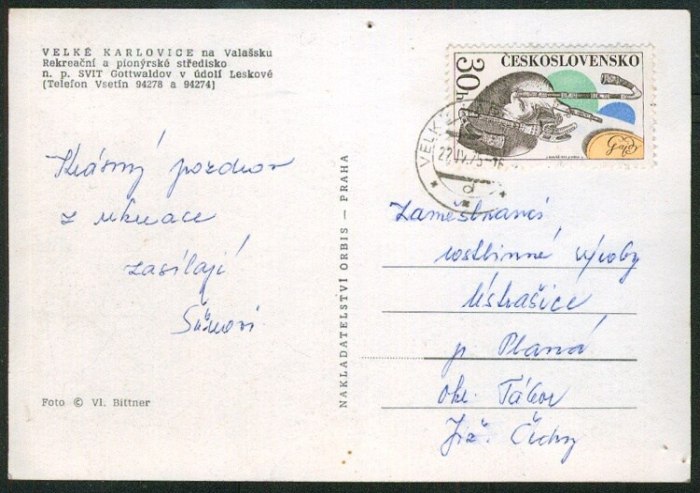 VELKÉ KARLOVICE na Valašsku
Rekreační a pionýrské středisko
n. p. SVIT Gottwaldov v údolí Leskové
(Telefon Vsetín 94278 a 94274)
Krásný pozdrav
z rekreace
zasílají
Foto © Vl. Bittner
NAKLADATELSTVÍ ORBIS — PRAHA
30h
ČESKOSLOVENSKO
Gajdy
VELK
22.IV.75-16
d
Zaměstnanci
rostlinné výroby
Ústrašice
p. Planá
okr. Tábor
Již. Čechy